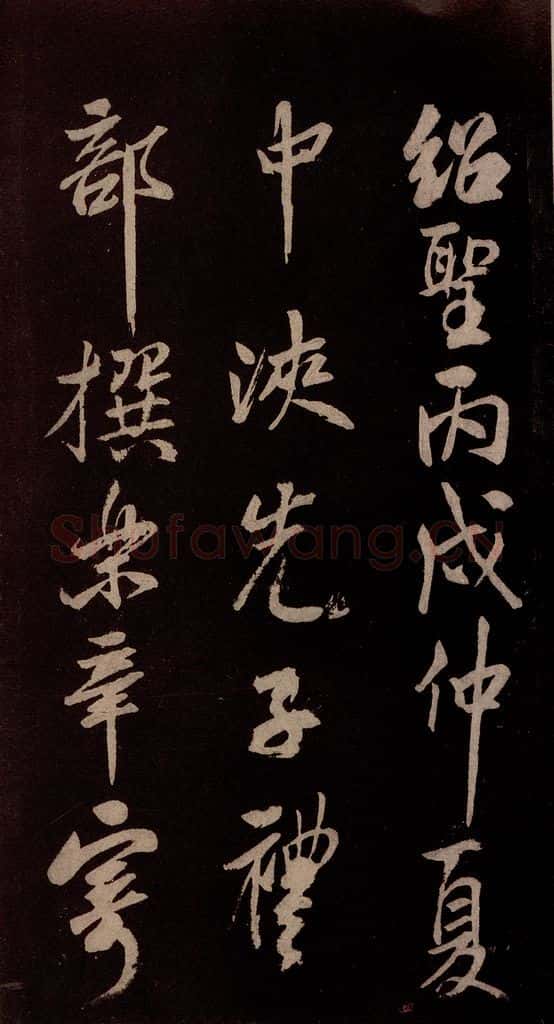 紹聖丙戌仲夏
中浹先子禮
部撰樂章寄
Shufawang.cn